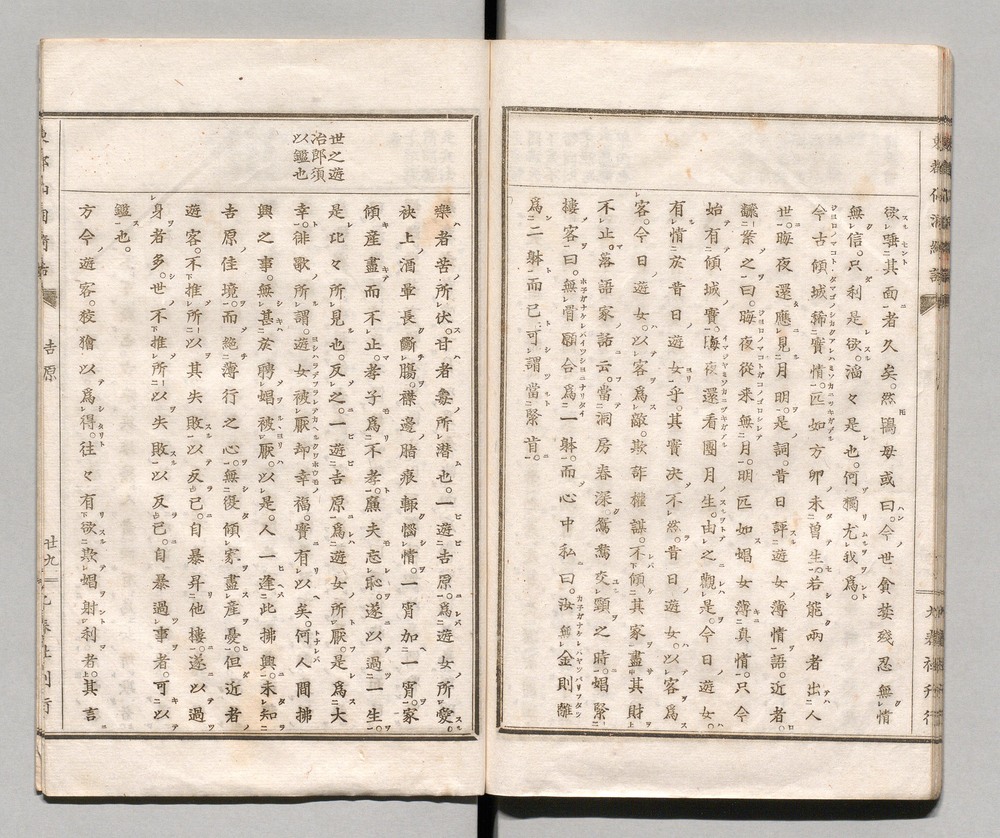 欲䮗其面者久矣。然鴇母或曰。今世食婪殘忍無情
無信。只利是欲。滔々是也。何獨尤我爲。
今古傾城稀實情。匹如方卵未曾生。若能兩者出人
世。晦夜還應見月明。是詞。昔日評遊女薄情語。近者
飜案之曰。晦夜從來無月明。匹如娼女薄真情。只今
始有傾城實。晦夜還看團月生。由之觀是。今日遊女。
有情於昔日遊女乎。其實决不然。昔日遊女。以客爲
客。今日遊女。以客爲敵。欺詐權謀。不傾其家盡其財
不止。落語家話云。當洞房春深。鴛鴦交頸之時。娼緊
摟客曰。無罥願合爲一躰。而心中私曰。汝無金則離
爲二躰而已。可謂當緊肯。
世之遊
冶郎須
以鑑也
樂者苦所伏。甘者毒所潜也。一遊吉原。爲遊女所愛
袂上酒暈長斷膓。襟邊脂痕輙惱情。一宵加一宵。家
傾産盡而不止。孝子爲不孝。廉夫忘恥。遂以過一生。
是比々所見也。反之。一遊吉原爲遊女所厭。是爲大
幸。俳歌所謂。遊女被厭却幸福。實有以矣。何人間拂
興之事。無甚於聘娼被厭。以是。人一逢此拂興。未知
吉原佳境。而絶薄行之心。無復傾家盡産憂。但近者
遊客。不推所以其失敗。以反己。自暴昇他樓。遂以過
身者多。世不推所以失敗。以反己。自暴過事者。可以
鑑也。
方今遊客。狡獪以爲得。往々有欲欺娼射利者。其言
吉原
廿九